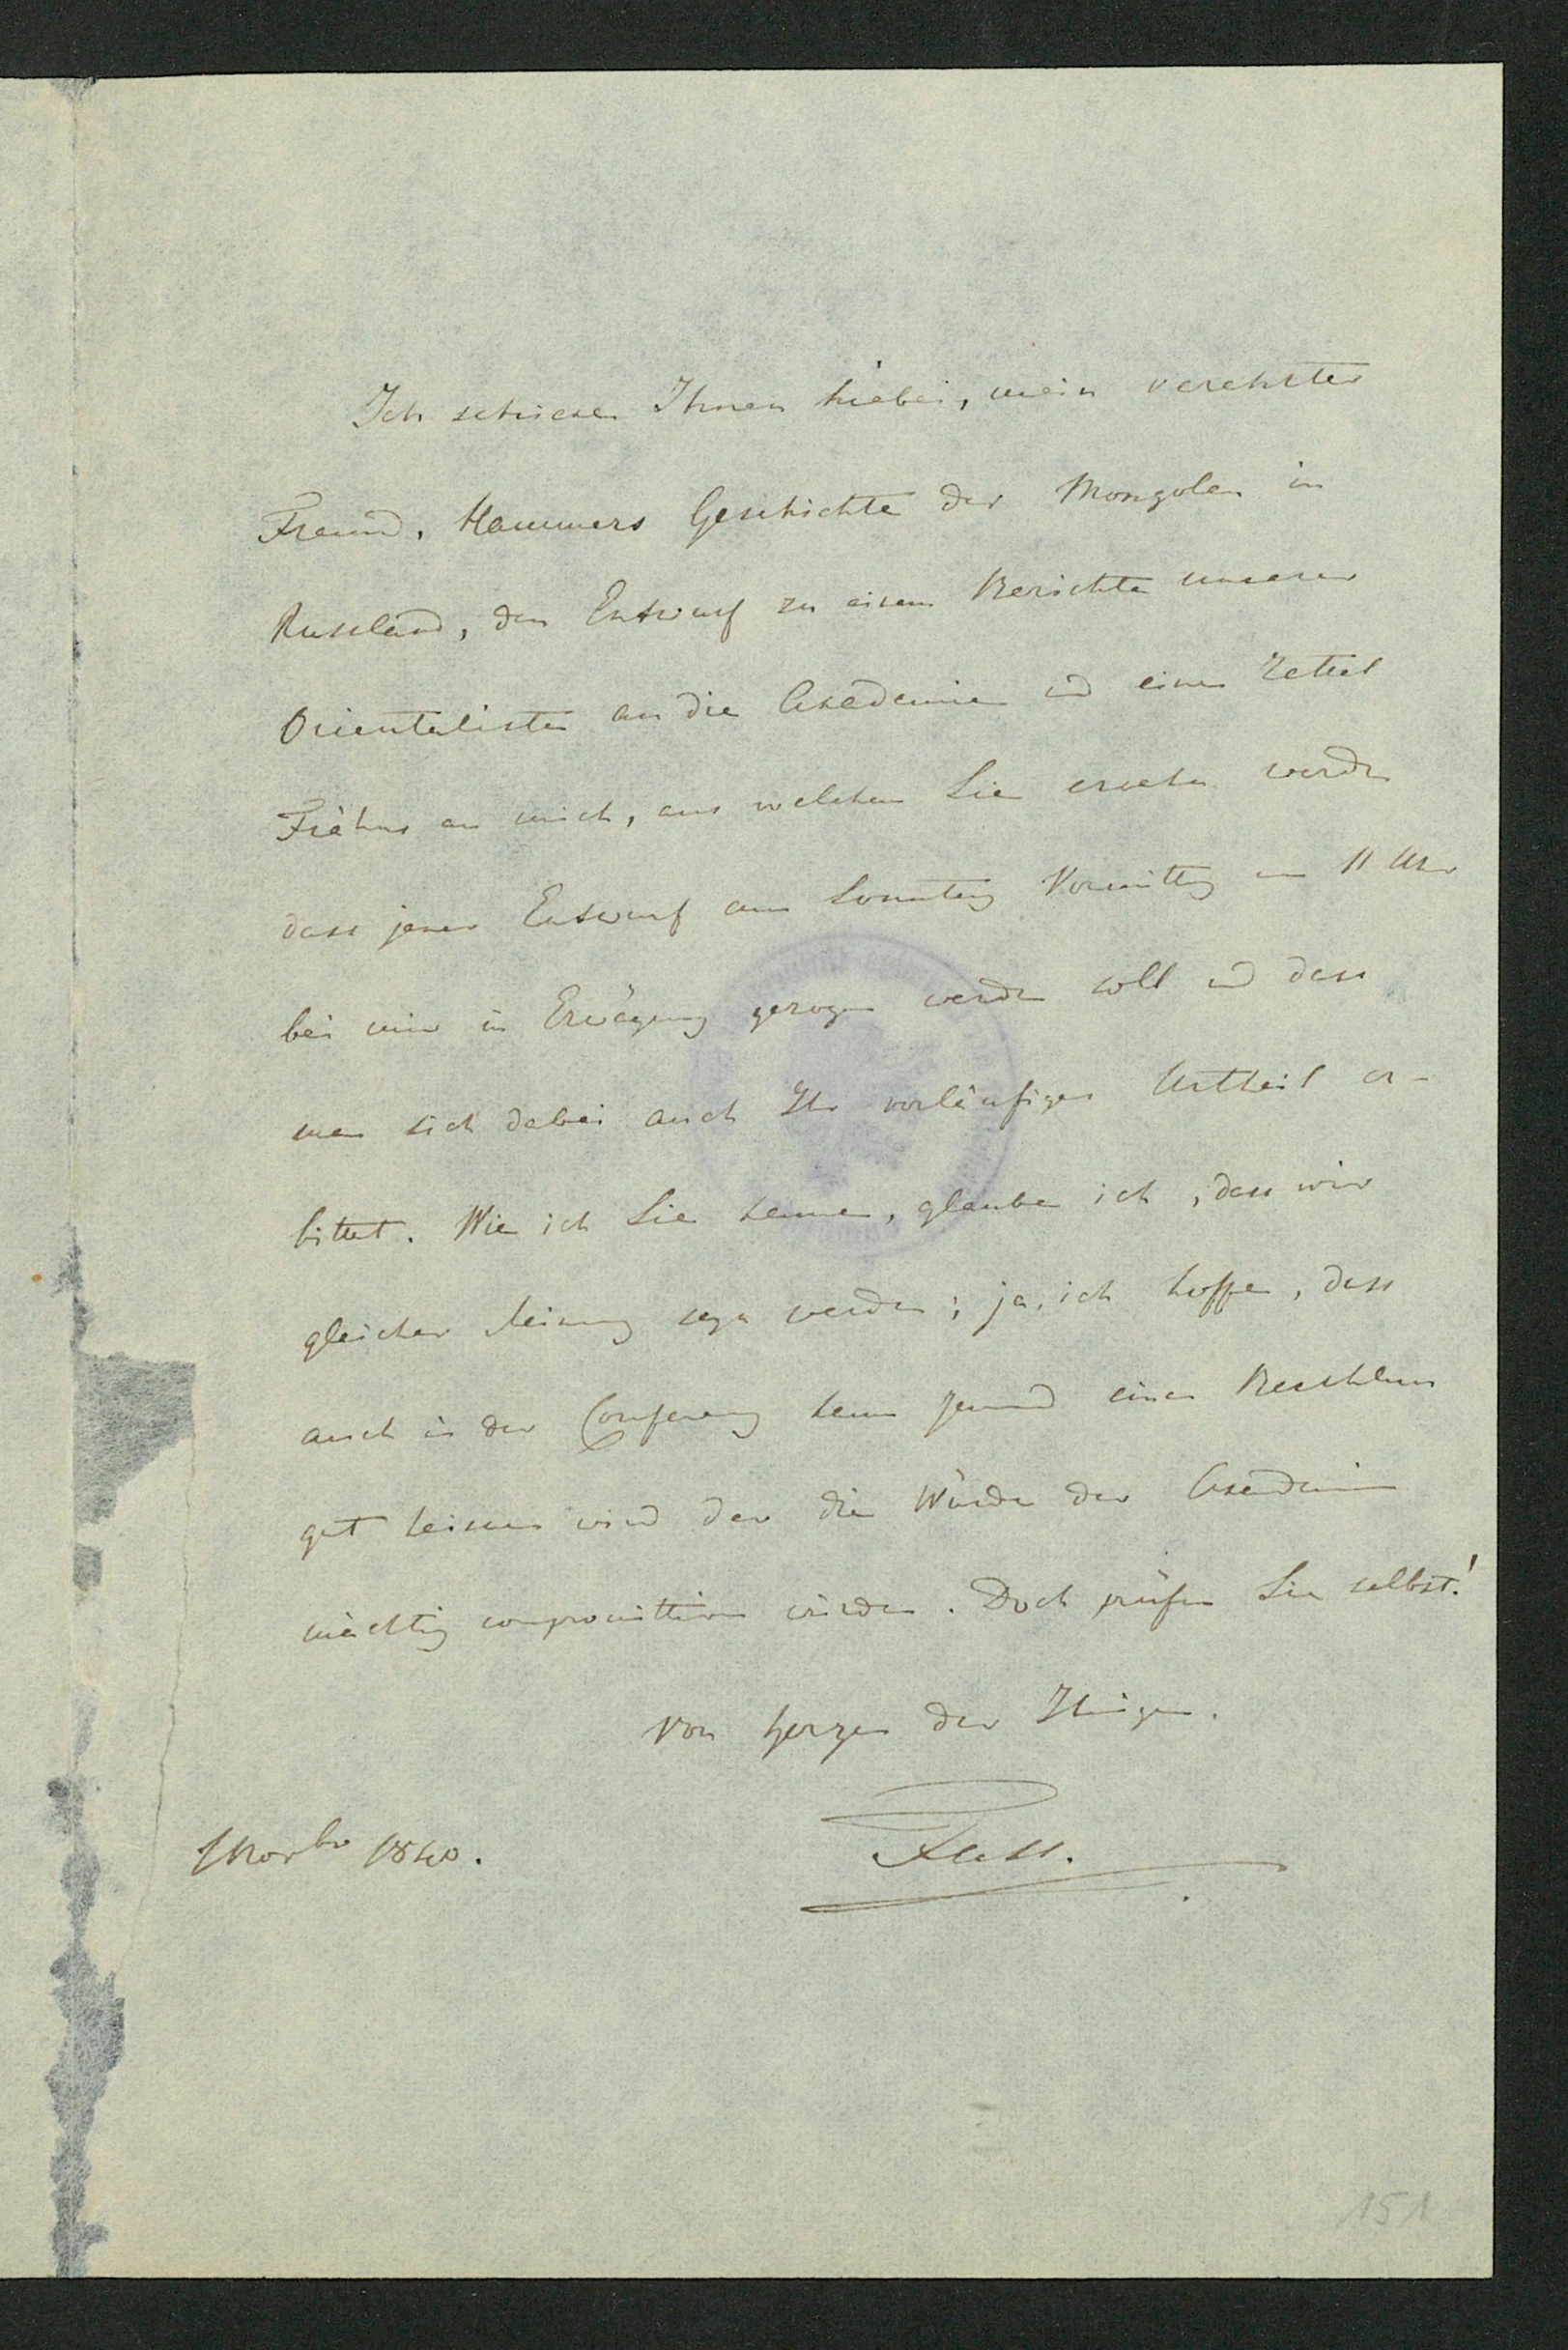 Ich schicke Ihnen hiebei, mein verehrter
Freund, Hammers Geschichte der Mongolen in
Russland, den Entwurf zu einem Berichte unserer
Orientalisten an die Akademie und einen Zettel
Frähns an mich, aus welchem Sie ersehen werden
dass jener Entwurf am Sonntag Vormittag um 11 Uhr
bei mir in Erwägung gezogen werden soll und dass
man sich dabei auch Ihr vorläufiges Urtheil er-
bittet. Wie ich Sie kenne, glaube ich, dass wir
gleicher Meinung seyn werden; ja, ich hoffe, dass
auch in der Conferenz kaum Jemand einen Beschluss
gut heissen wird der die Würde der Akademie
mächtig compromittiren würde. Doch prüfen Sie selbst!
Von Herzen der Ihrige.
Fuss.
1 Novbr 1840.
151